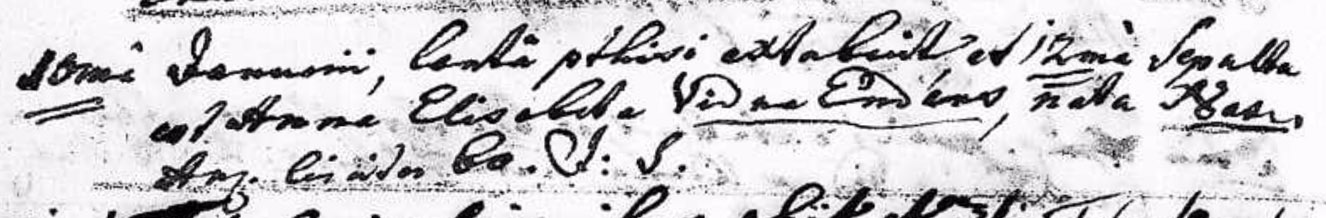 10mâ Januarii, lentâ pthisi extabuit et 12mâ Sepulta
est Anna Elisabetha Vidua Emans, nata
Ann. circiter 60. J: S.